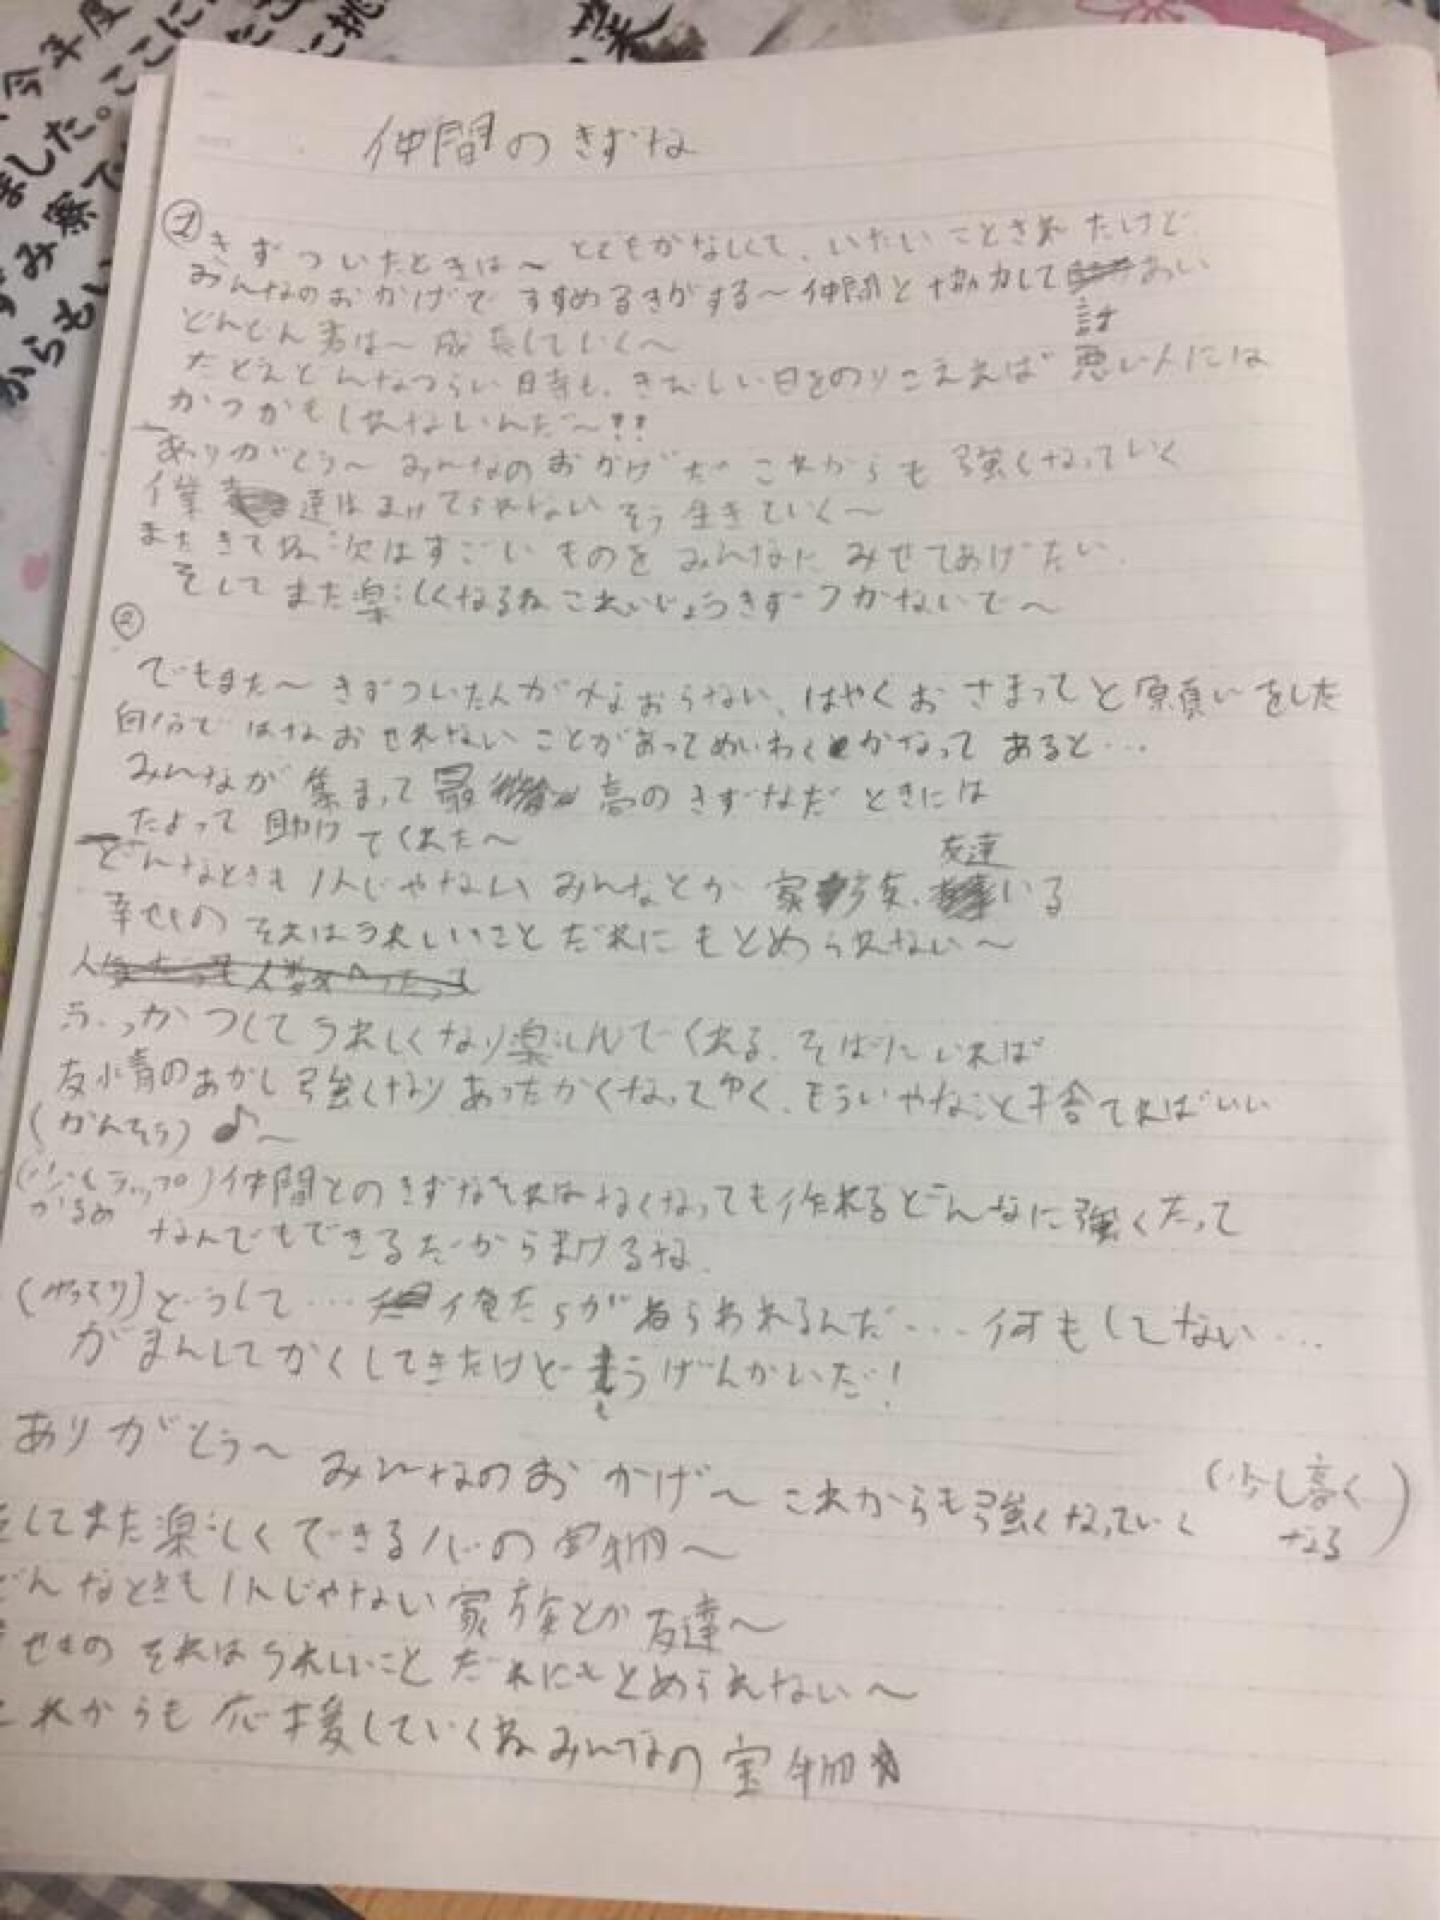 今年度
ました。ここに
仲間のきずな
① きずついたときは〜 とてもかなしくて、いたいことされたけど
みんなのおかげで すすめるきがする〜 仲間と協力して あい
討
どんどん君は〜 成長していく〜
たとえどんなつらい日時も、きびしい日をのりこえれば 悪い人には
かつかもしれないんだ〜!!
ありがとう〜 みんなのおかげだ これからも 強くなっていく
達はまけてられない そう 生きていく〜
またきてね 次はすごい ものを みんなに みせてあげたい
そして また楽しくなるね これいじょうきずつかないで〜
②
でもまた〜 きずついたんが なおらない、はやく おさまってと 願いをした
自分で はなおせれないことがあって めいわくとかなって あると…
みんなが 集まって 最 高の きずなだ ときには
たよって 助けてくれた〜
友達
どんなときも 1人じゃない みんなとか 家族、いる
幸せもの それはうれしいこと だれにもとめられない〜
ふっかつしてうれしくなり楽しんでくれる、そばにいれば
友情のあかし 強くなり あったかくなってゆく、もういやなこと捨てればいい
(かんそう) ♪〜
(少しラップ) 仲間とのきずなそれはなくなっても作れるどんなに強くたって
かるめ なんでもできるだからまけるな
(ゆっくり) どうして… 俺たちがねらわれるんだ… 何もしてない…
がまんしてかくしてきたけど もうげんかいだ!
ありがとう〜 みんなのおかげ〜 これからも強くなっていく (少し高く
なる)
してまた楽しくできる 心の宝物〜
どんなときも 1人じゃない 家族とか 友達〜
せもの それはうれしいこと だれにもとめられない〜
これからも 応援していくね みんなの 宝物☆